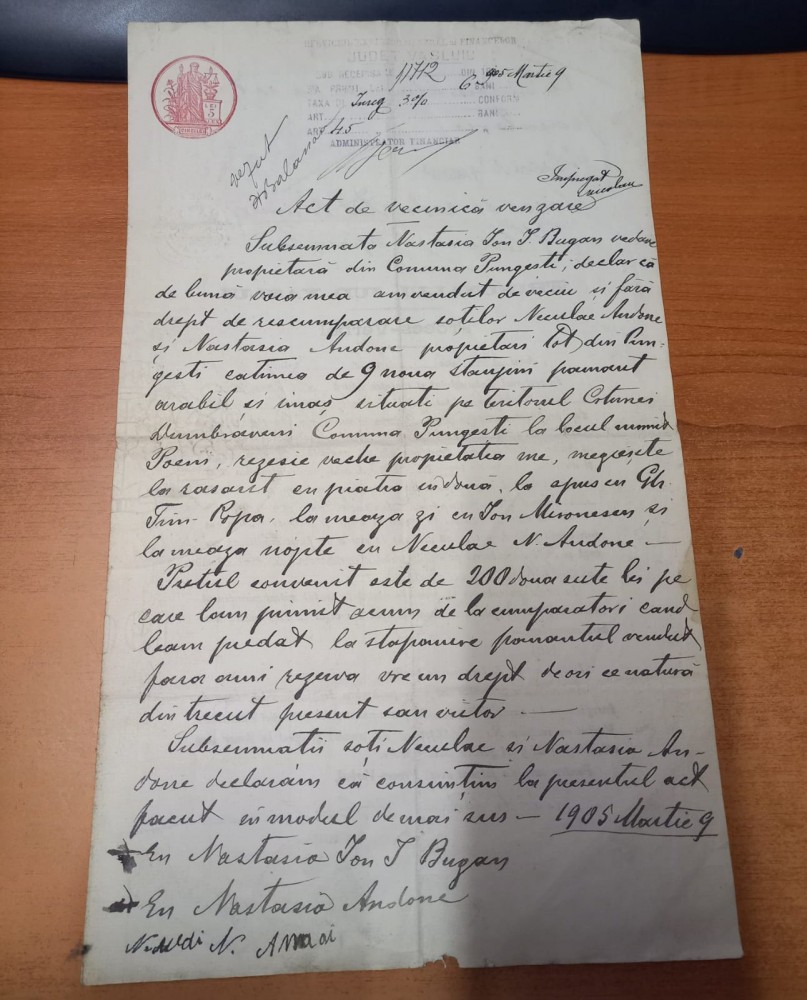 JUDEȚ VASLUI
11712 905 Martie 9
TAXA Inreg 3% CONFORM
ART. BANI
ART 45
ADMINISTRATOR FINANCIAR
LEI 5
vezut
Balana
Act de vecinică venzare
Subsemnata Nastasia Ion I. Bugan veduvă
propietară din Comuna Pungesti, declar că
de bună voia mea am vendut de veciu și fără
drept de rescumparare soților Neculae Andone
și Nastasia Andone propietari tot din Pun-
gesti catimea de 9 noua stanjini pamant
arabil si imaș situati pe teritoriul Cotunei
Dumbrăveni Comuna Pungesti la locul numit
Poeni, rezesie veche propietatea me, megieșite
la rasarit cu piatra in două, la apus cu Gh.
Tim. Popa, la meaza zi cu Ion Mironescu și
la meaza nópte cu Neculae N. Andone —
Pretul convenit este de 200 doua sute lei pe
care lam primit acum de la cumparatori cand
leam predat la stapanire pamantul vendut
fara ami rezerva vre un drept de ori ce natură
din trecut present sau viitor —
Subsemnatii soti Neculae si Nastasia An-
done declarăm că consimțim la presentul act
facut in modul de mai sus — 1905 Martie 9
Eu Nastasia Ion I Bugan
Eu Nastasia Andone
N.